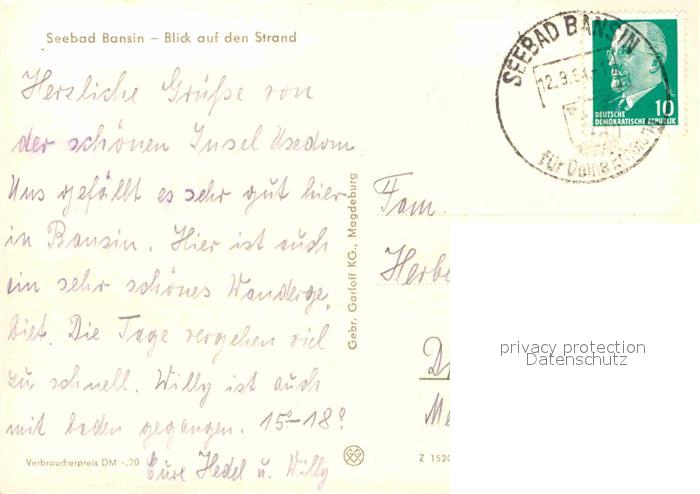 Seebad Bansin – Blick auf den Strand
Herzliche Grüße von
der schönen Insel Usedom
Uns gefällt es sehr gut hier
in Bansin. Hier ist auch
ein sehr schönes Wanderge,
biet. Die Tage vergehen viel
zu schnell. Willy ist auch
mit baden gegangen. 15°–18°
Eure Hedel u. Willy
Verbraucherpreis DM -,20
Gebr. Garloff KG., Magdeburg
SEEBAD BANSIN
12.9.64
für Deine
10
DEUTSCHE
DEMOKRATISCHE REPUBLIK
Fam.
Herbe
Me
Z 1520
privacy protection
Datenschutz